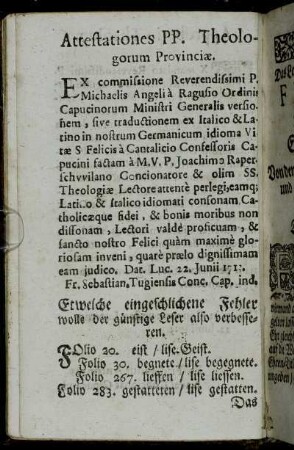 Attestationes PP. Theolo-
gorum Provinciæ.
EX commissione Reverendissimi P.
Michaelis Angeli à Ragusio Ordinis
Capucinorum Ministri Generalis versio-
nem, sive traductionem ex Italico & La-
tino in nostrum Germanicum idioma Vi-
tæ S Felicis à Cantalicio Confessoris Ca-
pucini factam à M. V. P. Joachimo Raper-
schvvilano Concionatore & olim SS.
Theologiæ Lectore attentè perlegi, eamq;
Latino & Italico idiomati consonam, Ca-
tholicæque fidei, & bonis moribus non
dissonam, Lectori valdè proficuam, &
sancto nostro Felici quàm maximè glo-
riosam inveni, quarè prælo dignissimam
eam judico. Dat. Luc. 22. Junii
Fr. Sebastian, Tugiensis Conc. Cap. ind.
Etwelche eingeschlichene Fehler
wolle der günstige Leser also verbesse-
ren.
FOlio 20. eist / lise. Geist.
Folio 30. begnete / lise begegnete.
Folio 267. lieffen / lise liessen.
Folio 283. gestatteren / lise gestatten.
Das